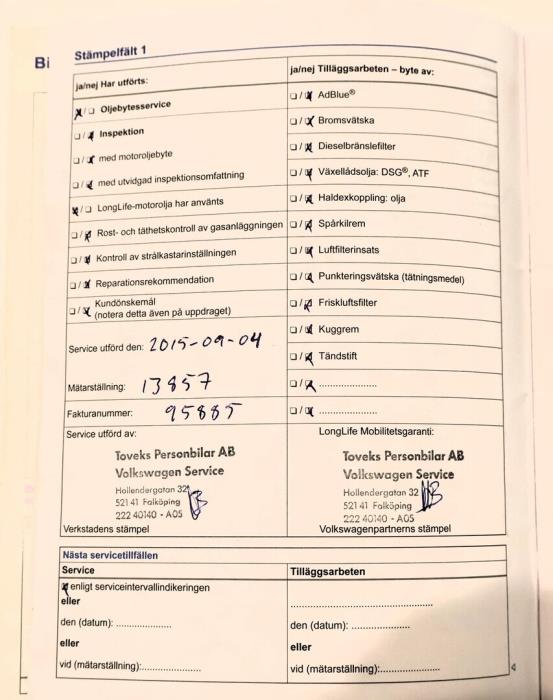 Bi
Stämpelfält 1
ja/nej Har utförts:
Oljebytesservice
Inspektion
med motoroljebyte
med utvidgad inspektionsomfattning
LongLife-motorolja har använts
Rost- och täthetskontroll av gasanläggningen
Kontroll av strålkastarinställningen
Reparationsrekommendation
Kundönskemål
(notera detta även på uppdraget)
Service utförd den: 2015-09-04
Mätarställning: 13857
Fakturanummer: 95885
Service utförd av:
Toveks Personbilar AB
Volkswagen Service
Hollendergatan 32
521 41 Falköping
222 40140 - A05
Verkstadens stämpel
ja/nej Tilläggsarbeten – byte av:
AdBlue®
Bromsvätska
Dieselbränslefilter
Växellådsolja: DSG®, ATF
Haldexkoppling: olja
Spårkilrem
Luftfilterinsats
Punkteringsvätska (tätningsmedel)
Friskluftsfilter
Kuggrem
Tändstift
....................
....................
LongLife Mobilitetsgaranti:
Toveks Personbilar AB
Volkswagen Service
Hollendergatan 32
521 41 Falköping
222 40140 - A05
Volkswagenpartnerns stämpel
Nästa servicetillfällen
Service
enligt serviceintervallindikeringen
eller
den (datum): ....................
eller
vid (mätarställning):....................
Tilläggsarbeten
..................................................
den (datum): ....................
eller
vid (mätarställning):....................